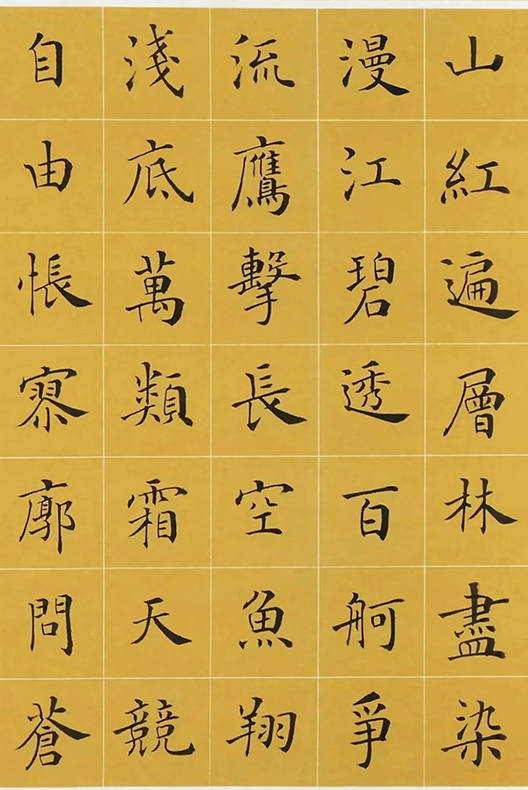 山紅遍層林盡染
漫江碧透百舸爭
流鷹擊長空魚翔
淺底萬類霜天競
自由悵寥廓問蒼